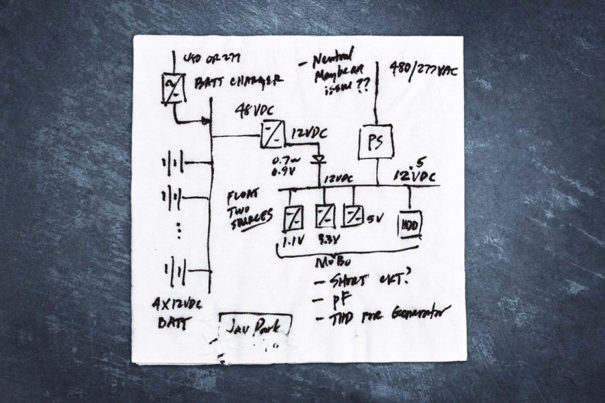 480 OR 277
BATT CHARGER
48VDC
12VDC
0.7 ~
0.9V
- Neutral
Maybe an
issue ??
480/277VAC
PS
12.5VDC
12VDC
FLOAT
TWO
SOURCES
1.1V
3.3V
5V
HDD
MoBo
4X12VDC
BATT
Jay Park
- SHORT CKT?
- PF
- THD FOR Generator